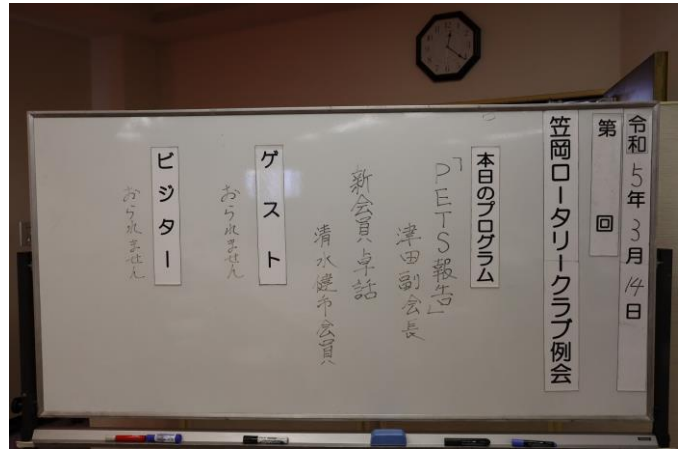 令和5年3月14日
第 回
笠岡ロータリークラブ例会
本日のプログラム
「PETS報告」
津田副会長
新会員卓話
清水健市会員
ゲスト
おられません
ビジター
おられません